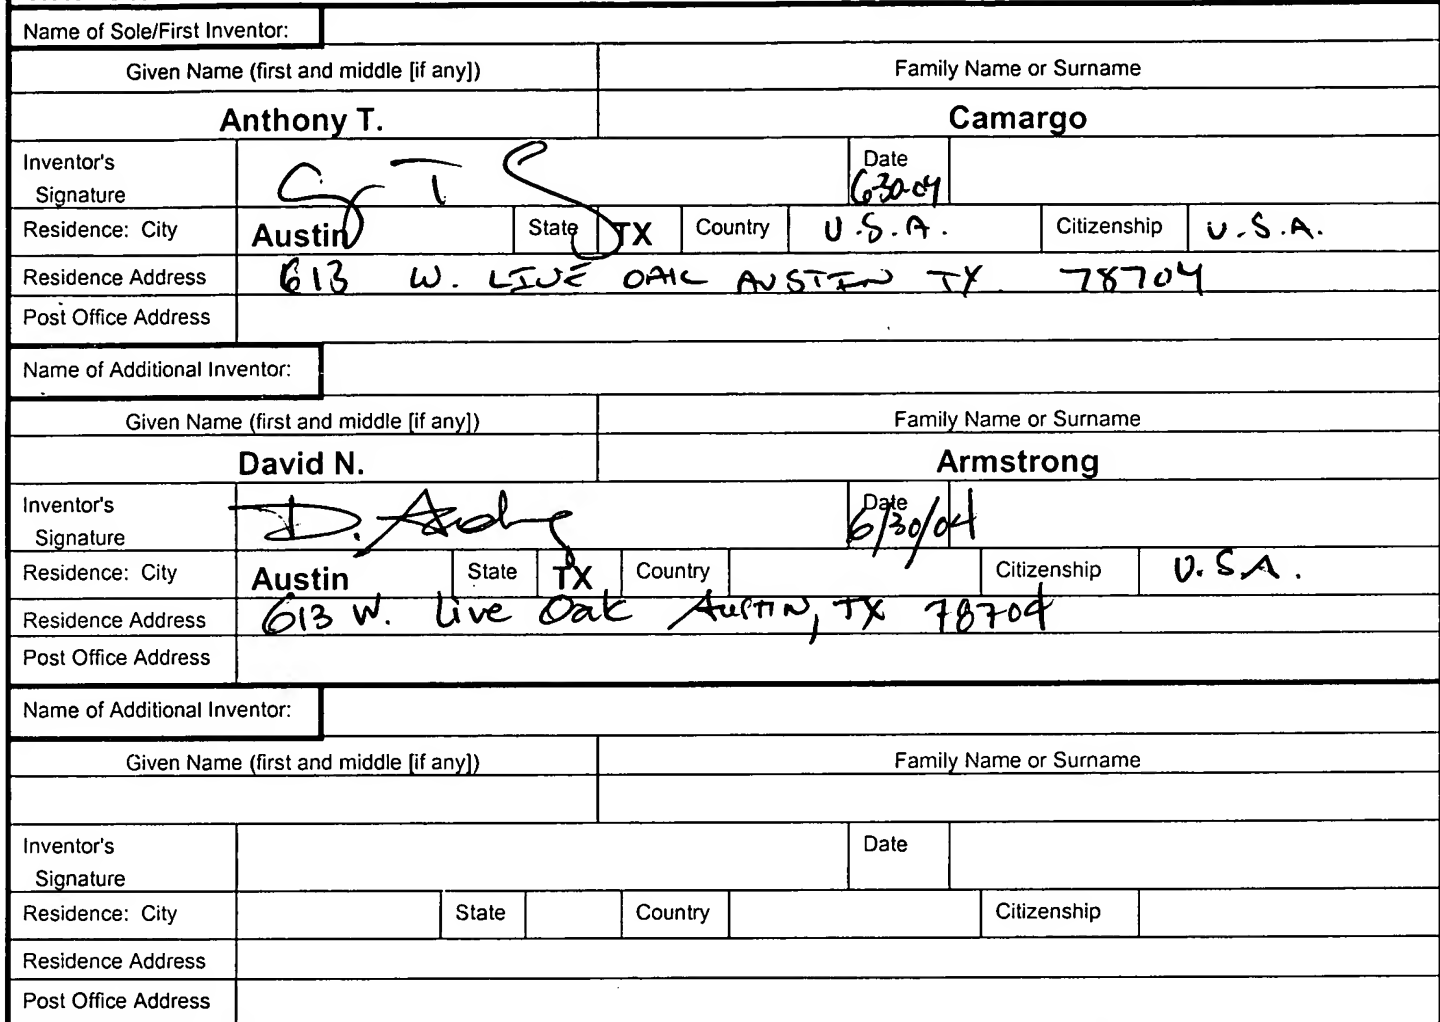 Name of Sole/First Inventor:
Given Name (first and middle [if any]) Family Name or Surname
Anthony T. Camargo
Inventor's Date
Signature 6-30-04
Residence: City Austin State TX Country U.S.A. Citizenship U.S.A.
Residence Address 613 W. LIVE OAK AUSTIN TX 78704
Post Office Address
Name of Additional Inventor:
Given Name (first and middle [if any]) Family Name or Surname
David N. Armstrong
Inventor's Date
Signature 6/30/04
Residence: City Austin State TX Country Citizenship U.S.A.
Residence Address 613 W. Live Oak Austin, TX 78704
Post Office Address
Name of Additional Inventor:
Given Name (first and middle [if any]) Family Name or Surname
Inventor's Date
Signature
Residence: City State Country Citizenship
Residence Address
Post Office Address